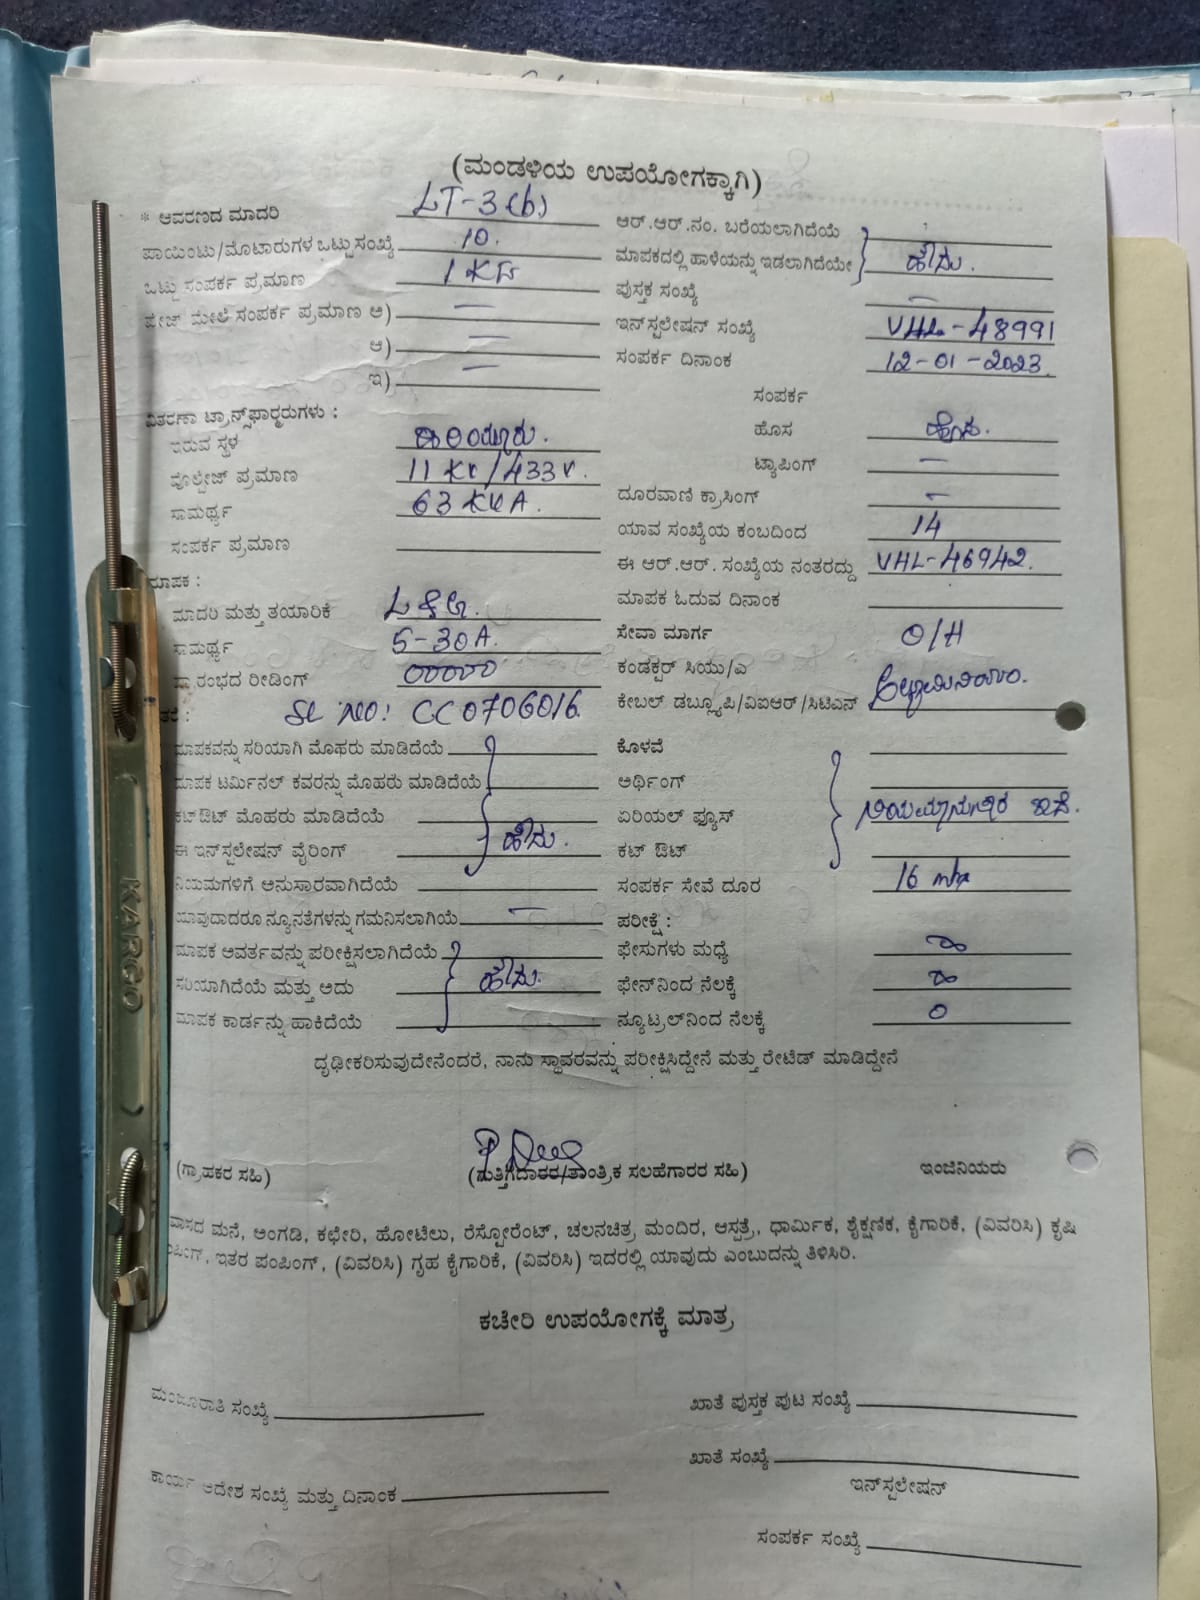 (ಮಂಡಳಿಯ ಉಪಯೋಗಕ್ಕಾಗಿ)
* ಆವರಣದ ಮಾದರಿ LT-3(b)
ಪಾಯಿಂಟು/ಮೊಟಾರುಗಳ ಒಟ್ಟು ಸಂಖ್ಯೆ 10.
ಒಟ್ಟು ಸಂಪರ್ಕ ಪ್ರಮಾಣ 1 KW
ಪೇಜ್ ಮೇಲೆ ಸಂಪರ್ಕ ಪ್ರಮಾಣ ಅ) —
ಆ) —
ಇ) —
ವಿತರಣಾ ಟ್ರಾನ್ಸ್‌ಫಾರ್‍ಮರುಗಳು :
ಇರುವ ಸ್ಥಳ
ವೋಲ್ಟೇಜ್ ಪ್ರಮಾಣ 11 KV/433V.
ಸಾಮರ್ಥ್ಯ 63 KVA.
ಸಂಪರ್ಕ ಪ್ರಮಾಣ
ಮಾಪಕ :
ಮಾದರಿ ಮತ್ತು ತಯಾರಿಕೆ
ಸಾಮರ್ಥ್ಯ 5-30A.
ಪ್ರಾರಂಭದ ರೀಡಿಂಗ್ 00000
ಇತರೆ : SL NO: CC0706016
ಮಾಪಕವನ್ನು ಸರಿಯಾಗಿ ಮೊಹರು ಮಾಡಿದೆಯೆ
ಮಾಪಕ ಟರ್ಮಿನಲ್ ಕವರನ್ನು ಮೊಹರು ಮಾಡಿದೆಯೆ
ಕಟ್‌ಔಟ್ ಮೊಹರು ಮಾಡಿದೆಯೆ
ಈ ಇನ್‌ಸ್ಟಲೇಷನ್ ವೈರಿಂಗ್ ಹೌದು.
ನಿಯಮಗಳಿಗೆ ಅನುಸ್ಸಾರವಾಗಿದೆಯೆ
ಯಾವುದಾದರೂ ನ್ಯೂನತೆಗಳನ್ನು ಗಮನಿಸಲಾಗಿಯೆ —
ಮಾಪಕ ಆವರ್ತವನ್ನು ಪರೀಕ್ಷಿಸಲಾಗಿದೆಯೆ
ಸರಿಯಾಗಿದೆಯೆ ಮತ್ತು ಅದು ಹೌದು.
ಮಾಪಕ ಕಾರ್ಡನ್ನು ಹಾಕಿದೆಯೆ
ಆರ್.ಆರ್.ನಂ. ಬರೆಯಲಾಗಿದೆಯೆ
ಮಾಪಕದಲ್ಲಿ ಹಾಳೆಯನ್ನು ಇಡಲಾಗಿದೆಯೇ ಹೌದು.
ಪುಸ್ತಕ ಸಂಖ್ಯೆ —
ಇನ್‌ಸ್ಟಲೇಷನ್ ಸಂಖ್ಯೆ VHL-48991
ಸಂಪರ್ಕ ದಿನಾಂಕ 12-01-2023.
ಸಂಪರ್ಕ
ಹೊಸ ಹೊಸ.
ಟ್ಯಾಪಿಂಗ್ —
ದೂರವಾಣಿ ಕ್ರಾಸಿಂಗ್ —
ಯಾವ ಸಂಖ್ಯೆಯ ಕಂಬದಿಂದ 14
ಈ ಆರ್.ಆರ್. ಸಂಖ್ಯೆಯ ನಂತರದ್ದು VHL-46942.
ಮಾಪಕ ಓದುವ ದಿನಾಂಕ
ಸೇವಾ ಮಾರ್ಗ O/H
ಕಂಡಕ್ಟರ್ ಸಿಯು/ಎ
ಕೇಬಲ್ ಡಬ್ಲ್ಯೂಪಿ/ವಿಐಆರ್/ಸಿಟಿಎಸ್ ಅಲ್ಯೂಮಿನಿಯಂ.
ಕೊಳವೆ
ಅರ್ಥಿಂಗ್
ಏರಿಯಲ್ ಫ್ಯೂಸ್ ನಿಯಮಾನುಸಾರ ಇದೆ.
ಕಟ್ ಔಟ್
ಸಂಪರ್ಕ ಸೇವೆ ದೂರ 16 mtr
ಪರೀಕ್ಷೆ :
ಫೇಸುಗಳು ಮಧ್ಯೆ
ಫೇಸ್‌ನಿಂದ ನೆಲಕ್ಕೆ
ನ್ಯೂಟ್ರಲ್‌ನಿಂದ ನೆಲಕ್ಕೆ 0
ದೃಢೀಕರಿಸುವುದೇನೆಂದರೆ, ನಾನು ಸ್ಥಾವರವನ್ನು ಪರೀಕ್ಷಿಸಿದ್ದೇನೆ ಮತ್ತು ರೇಟೆಡ್ ಮಾಡಿದ್ದೇನೆ
(ಗ್ರಾಹಕರ ಸಹಿ) (ಗುತ್ತಿಗೆದಾರರ/ತಾಂತ್ರಿಕ ಸಲಹೆಗಾರರ ಸಹಿ) ಇಂಜಿನಿಯರು
ವಾಸದ ಮನೆ, ಅಂಗಡಿ, ಕಛೇರಿ, ಹೋಟೆಲು, ರೆಸ್ಟೋರೆಂಟ್, ಚಲನಚಿತ್ರ ಮಂದಿರ, ಆಸ್ಪತ್ರೆ, ಧಾರ್ಮಿಕ, ಶೈಕ್ಷಣಿಕ, ಕೈಗಾರಿಕೆ, (ವಿವರಿಸಿ) ಕೃಷಿ
ಪಂಪಿಂಗ್, ಇತರ ಪಂಪಿಂಗ್, (ವಿವರಿಸಿ) ಗೃಹ ಕೈಗಾರಿಕೆ, (ವಿವರಿಸಿ) ಇದರಲ್ಲಿ ಯಾವುದು ಎಂಬುದನ್ನು ತಿಳಿಸಿರಿ.
ಕಚೇರಿ ಉಪಯೋಗಕ್ಕೆ ಮಾತ್ರ
ಮಂಜೂರಾತಿ ಸಂಖ್ಯೆ
ಖಾತೆ ಪುಸ್ತಕ ಪುಟ ಸಂಖ್ಯೆ
ಖಾತೆ ಸಂಖ್ಯೆ
ಕಾರ್ಯ ಆದೇಶ ಸಂಖ್ಯೆ ಮತ್ತು ದಿನಾಂಕ
ಇನ್‌ಸ್ಟಲೇಷನ್
ಸಂಪರ್ಕ ಸಂಖ್ಯೆ
KARGO